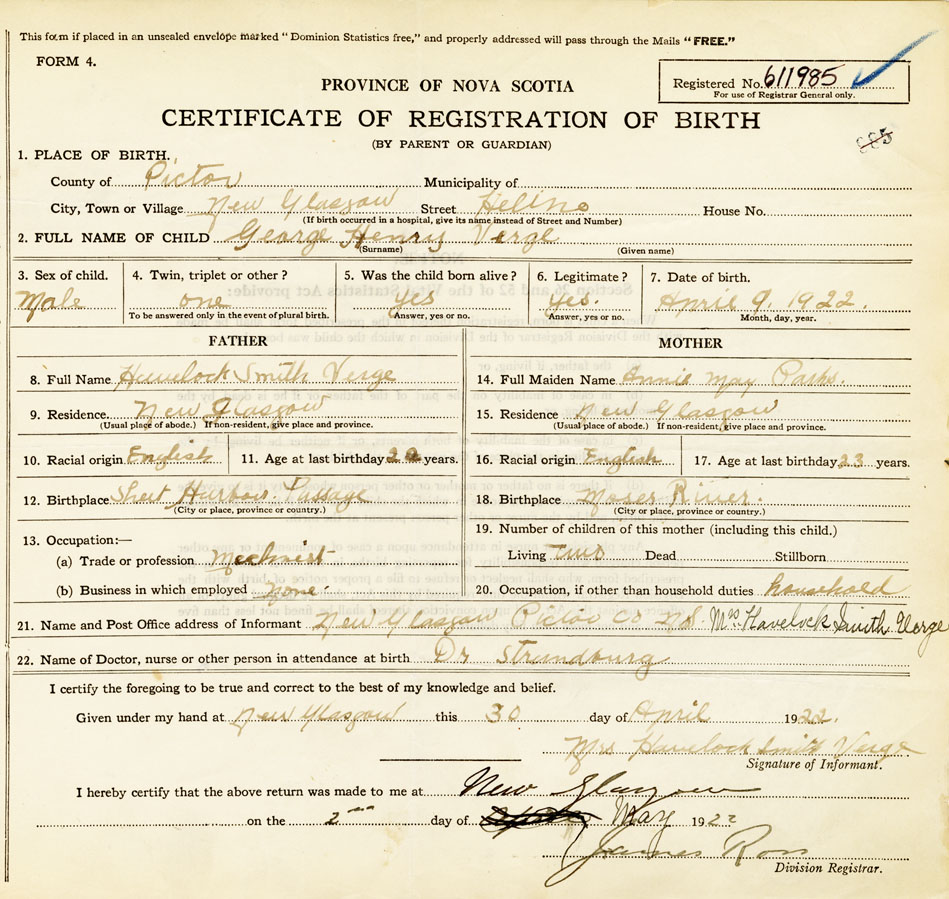 This form if placed in an unsealed envelope marked "Dominion Statistics free," and properly addressed will pass through the Mails "FREE."
FORM 4.
PROVINCE OF NOVA SCOTIA
Registered No. 611985
For use of Registrar General only.
CERTIFICATE OF REGISTRATION OF BIRTH
(BY PARENT OR GUARDIAN)
885
1. PLACE OF BIRTH.
County of Pictou Municipality of
City, Town or Village New Glasgow Street House No.
(If birth occurred in a hospital, give its name instead of Street and Number)
2. FULL NAME OF CHILD George Henry Verge
(Surname) (Given name)
3. Sex of child. 4. Twin, triplet or other? 5. Was the child born alive? 6. Legitimate? 7. Date of birth.
Male one yes yes. April 9. 1922.
To be answered only in the event of plural birth. Answer, yes or no. Answer, yes or no. Month, day, year.
FATHER MOTHER
8. Full Name Havelock Smith Verge 14. Full Maiden Name Annie May Parks.
9. Residence New Glasgow 15. Residence New Glasgow
(Usual place of abode.) If non-resident, give place and province. (Usual place of abode.) If non-resident, give place and province.
10. Racial origin English 11. Age at last birthday years. 16. Racial origin English 17. Age at last birthday 23 years.
12. Birthplace Sheet Harbour Passage 18. Birthplace Moser River.
(City or place, province or country.) (City or place, province or country.)
13. Occupation:— 19. Number of children of this mother (including this child.)
(a) Trade or profession Living two Dead Stillborn
(b) Business in which employed none. 20. Occupation, if other than household duties household
21. Name and Post Office address of Informant New Glasgow Pictou Co N.S. Mrs. Havelock Smith George
22. Name of Doctor, nurse or other person in attendance at birth Dr
I certify the foregoing to be true and correct to the best of my knowledge and belief.
Given under my hand at New Glasgow this 30 day of April 1922.
Mrs Havelock Smith Verge
Signature of Informant.
I hereby certify that the above return was made to me at New Glasgow
on the 2 day of May 1922
James Ross
Division Registrar.